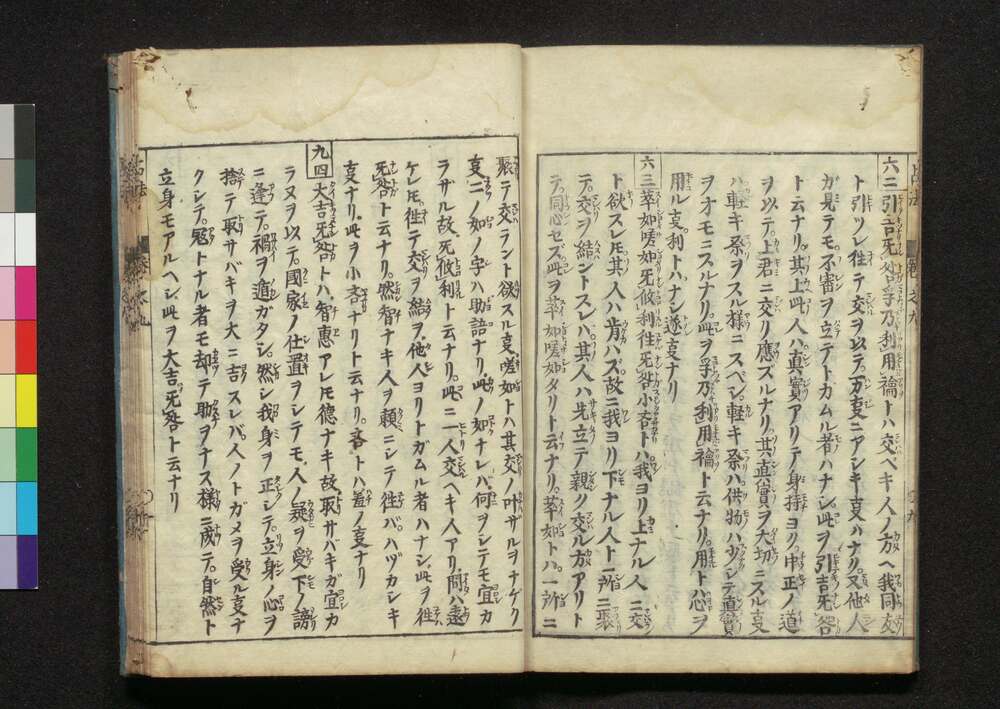 六二 引吉无咎孚乃利用禴トハ交ベキ人ノ方ヘ我同友
ト引ツレ往テ交ヲ以テ万叓ニアシキ叓ハナリ又他人
ガ見テモ不審ヲ立テトカムル者ハナシ此ヲ引吉无咎
ト云ナリ其上此人ハ真實アリテ身持ヨリ中正ノ道
ヲ以テ上君ニ交リ應ズルナリ其直實ヲ大切ニスル叓
ハ軽キ祭ヲスル様ニスベシ軽キ祭ハ供物ハ少シテ真實
ヲオモニスルナリ此ヲ孚乃利用禴ト云ナリ用トハ心ヲ
用ル叓利トハナシ遂叓ナリ
六三 萃如嗟如无攸利往无咎小吝トハ我ヨリ上ナル人ニ交
ト欲スレ𪜈其人ハ肯ハズ故ニ我ヨリ下ナル人ト一所ニ聚
テ交ヲ結ントスレハ其人ハ先立テ親ク交ル方アリト
テ同心セズ此ヲ萃如嗟如タリト云ナリ萃如トハ一所ニ
聚テ交ラント欲スル叓嗟如トハ其交ノ叶ザルヲナゲク
叓二ノ如ノ字ハ助語ナリ此ノ如ナレバ何ヲシテモ宜カ
ラザル故无攸利ト云ナリ此ニ一人交ヘキ人アリ間ハ遠
ケレ𪜈往テ交ヲ結ヘ他人ヨリトガムル者ハナシ此ヲ往
无咎ト云ナリ然智ナキ人ヲ頼ニシテ往バハヅカシキ
叓ナリ此ヲ小吝ナリト云ナリ吝トハ羞ノ叓ナリ
九四 大吉无咎トハ智惠アレ𪜈德ナキ故取サバキガ宜カ
ラヌヲ以テ國家ノ仕置ヲシテモ人ノ疑ヲ受下ノ謗
ニ逢テ禍ヲ遁ガタシ然シ我身ヲ正シテ立身ノ心ヲ
捨テ取サバキヲ大ニ吉スレバ人ノトガメヲ受ル叓ナ
クシテ冦トナル者モ却テ助ヲナス様ニ成テ自然ト
立身モアルヘシ此ヲ大吉无咎ト云ナリ